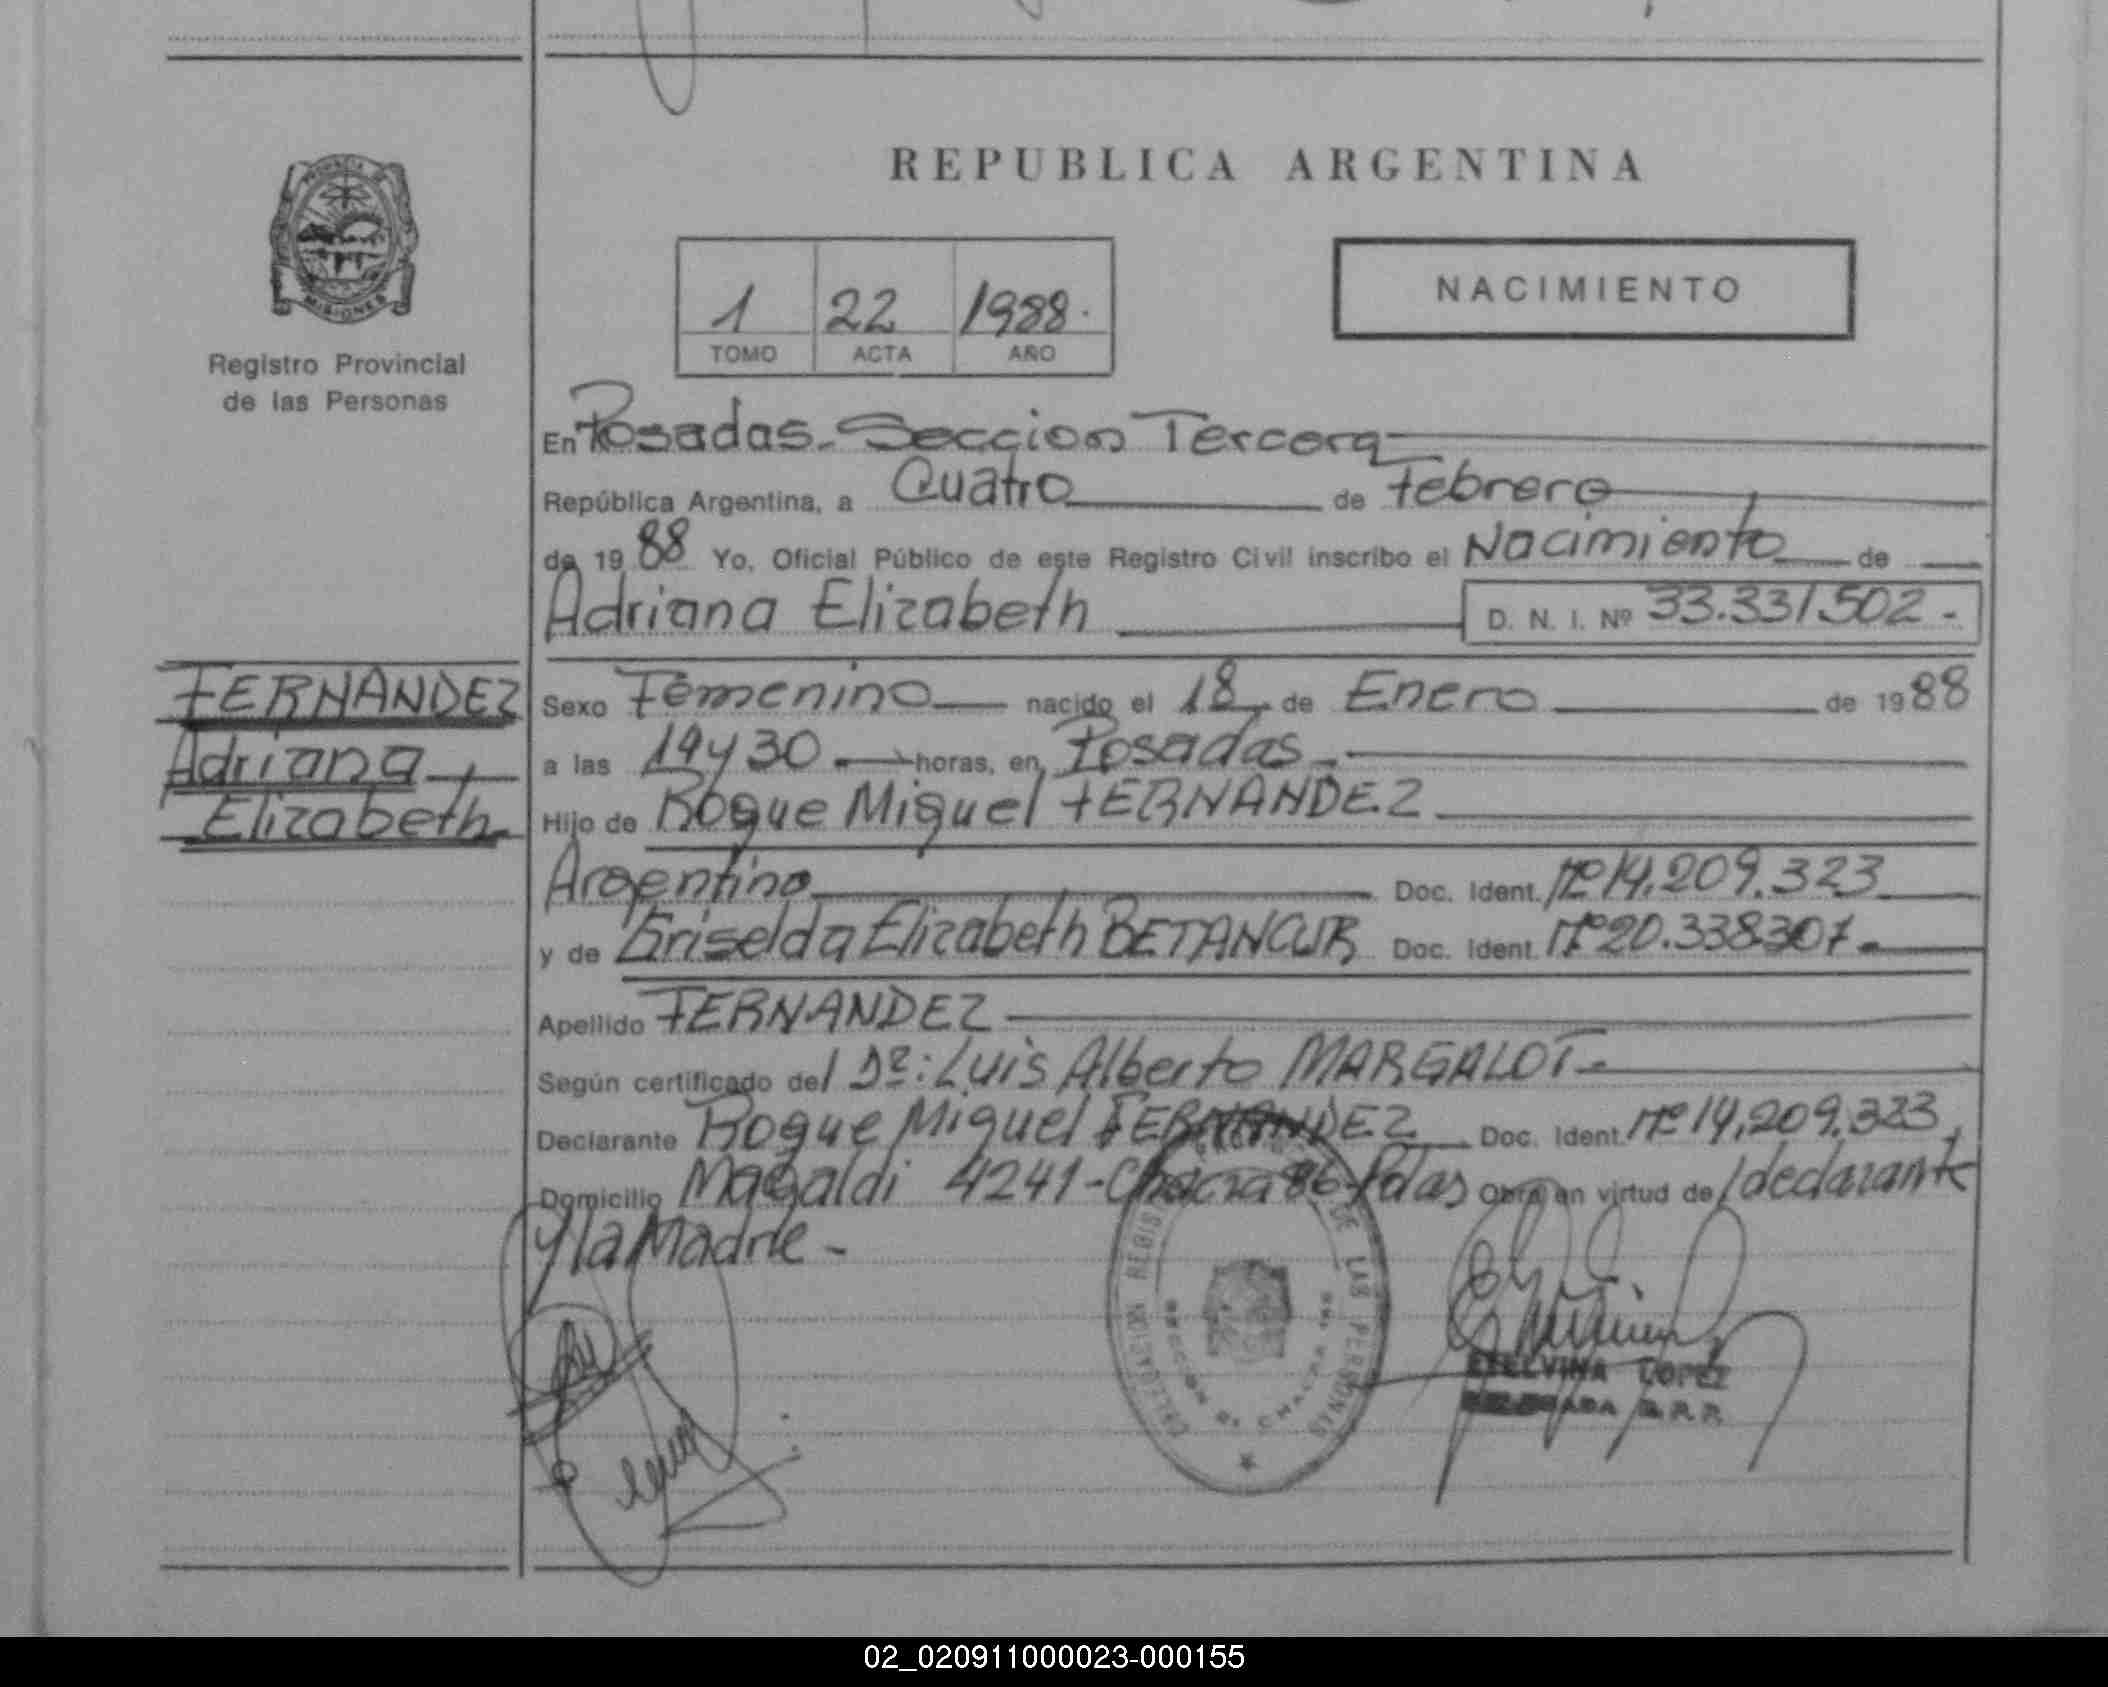 REPUBLICA ARGENTINA
Registro Provincial
de las Personas
1 22 1988.
TOMO ACTA AÑO
NACIMIENTO
En Posadas. Seccion Tercera
República Argentina, a Cuatro de Febrero
de 19 88 Yo, Oficial Público de este Registro Civil inscribo el Nacimiento de
Adriana Elizabeth D. N. I. Nº 33.331502.-
FERNANDEZ
Adriana
Elizabeth
Sexo Femenino nacido el 18 de Enero de 19 88
a las 19 y 30 horas, en Posadas
Hijo de Roque Miguel FERNANDEZ
Argentino Doc. Ident. Nº 14.209.323
y de Griselda Elizabeth BETANCUR Doc. Ident. Nº 20.338307.
Apellido FERNANDEZ
Según certificado del Dr: Luis Alberto MARGALOT
Declarante Roque Miguel FERNANDEZ Doc. Ident. Nº 14.209.323
Domicilio Magaldi 4241-Chacra 86-Pdas Obra en virtud de/declarante
y la Madre-
DELEGACION REGISTRO DE LAS PERSONAS
ETELVINA LOPEZ
DELEGADA R.P.P.
02_020911000023-000155